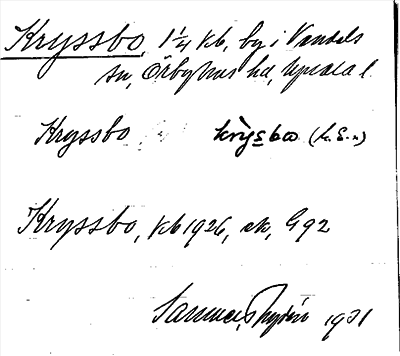 Kryssbo, 1 1/4 kb, by i Vendels
sn, Örbyhus hd, Upsala l.
Kryssbo krysbω (h. S.)
Kryssbo, kb 1926, ek, G 92
1931